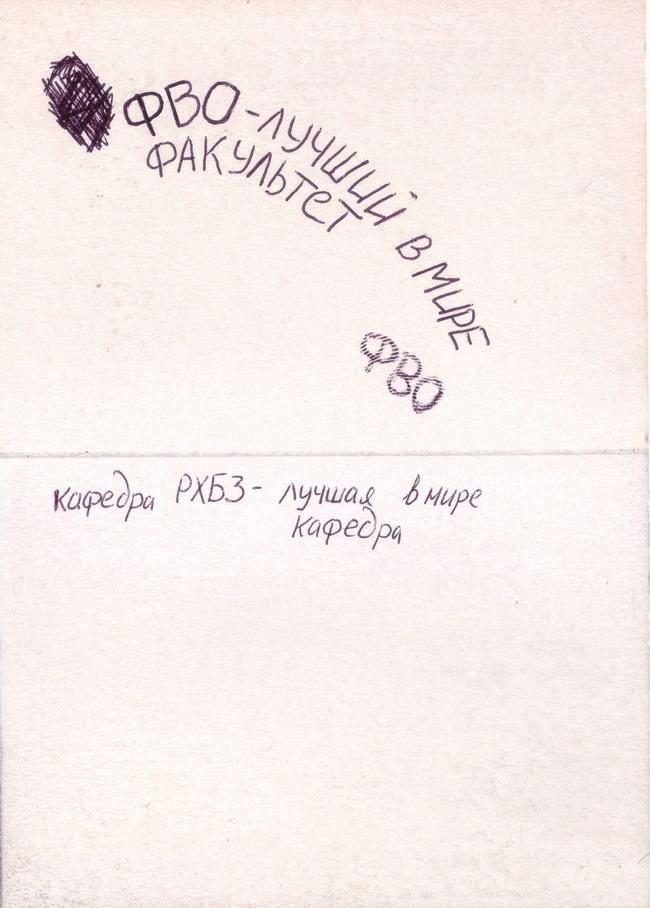 ФВО-ЛУЧШИЙ В МИРЕ
ФАКУЛЬТЕТ
ФВО
кафедра РХБЗ- лучшая в мире
кафедра